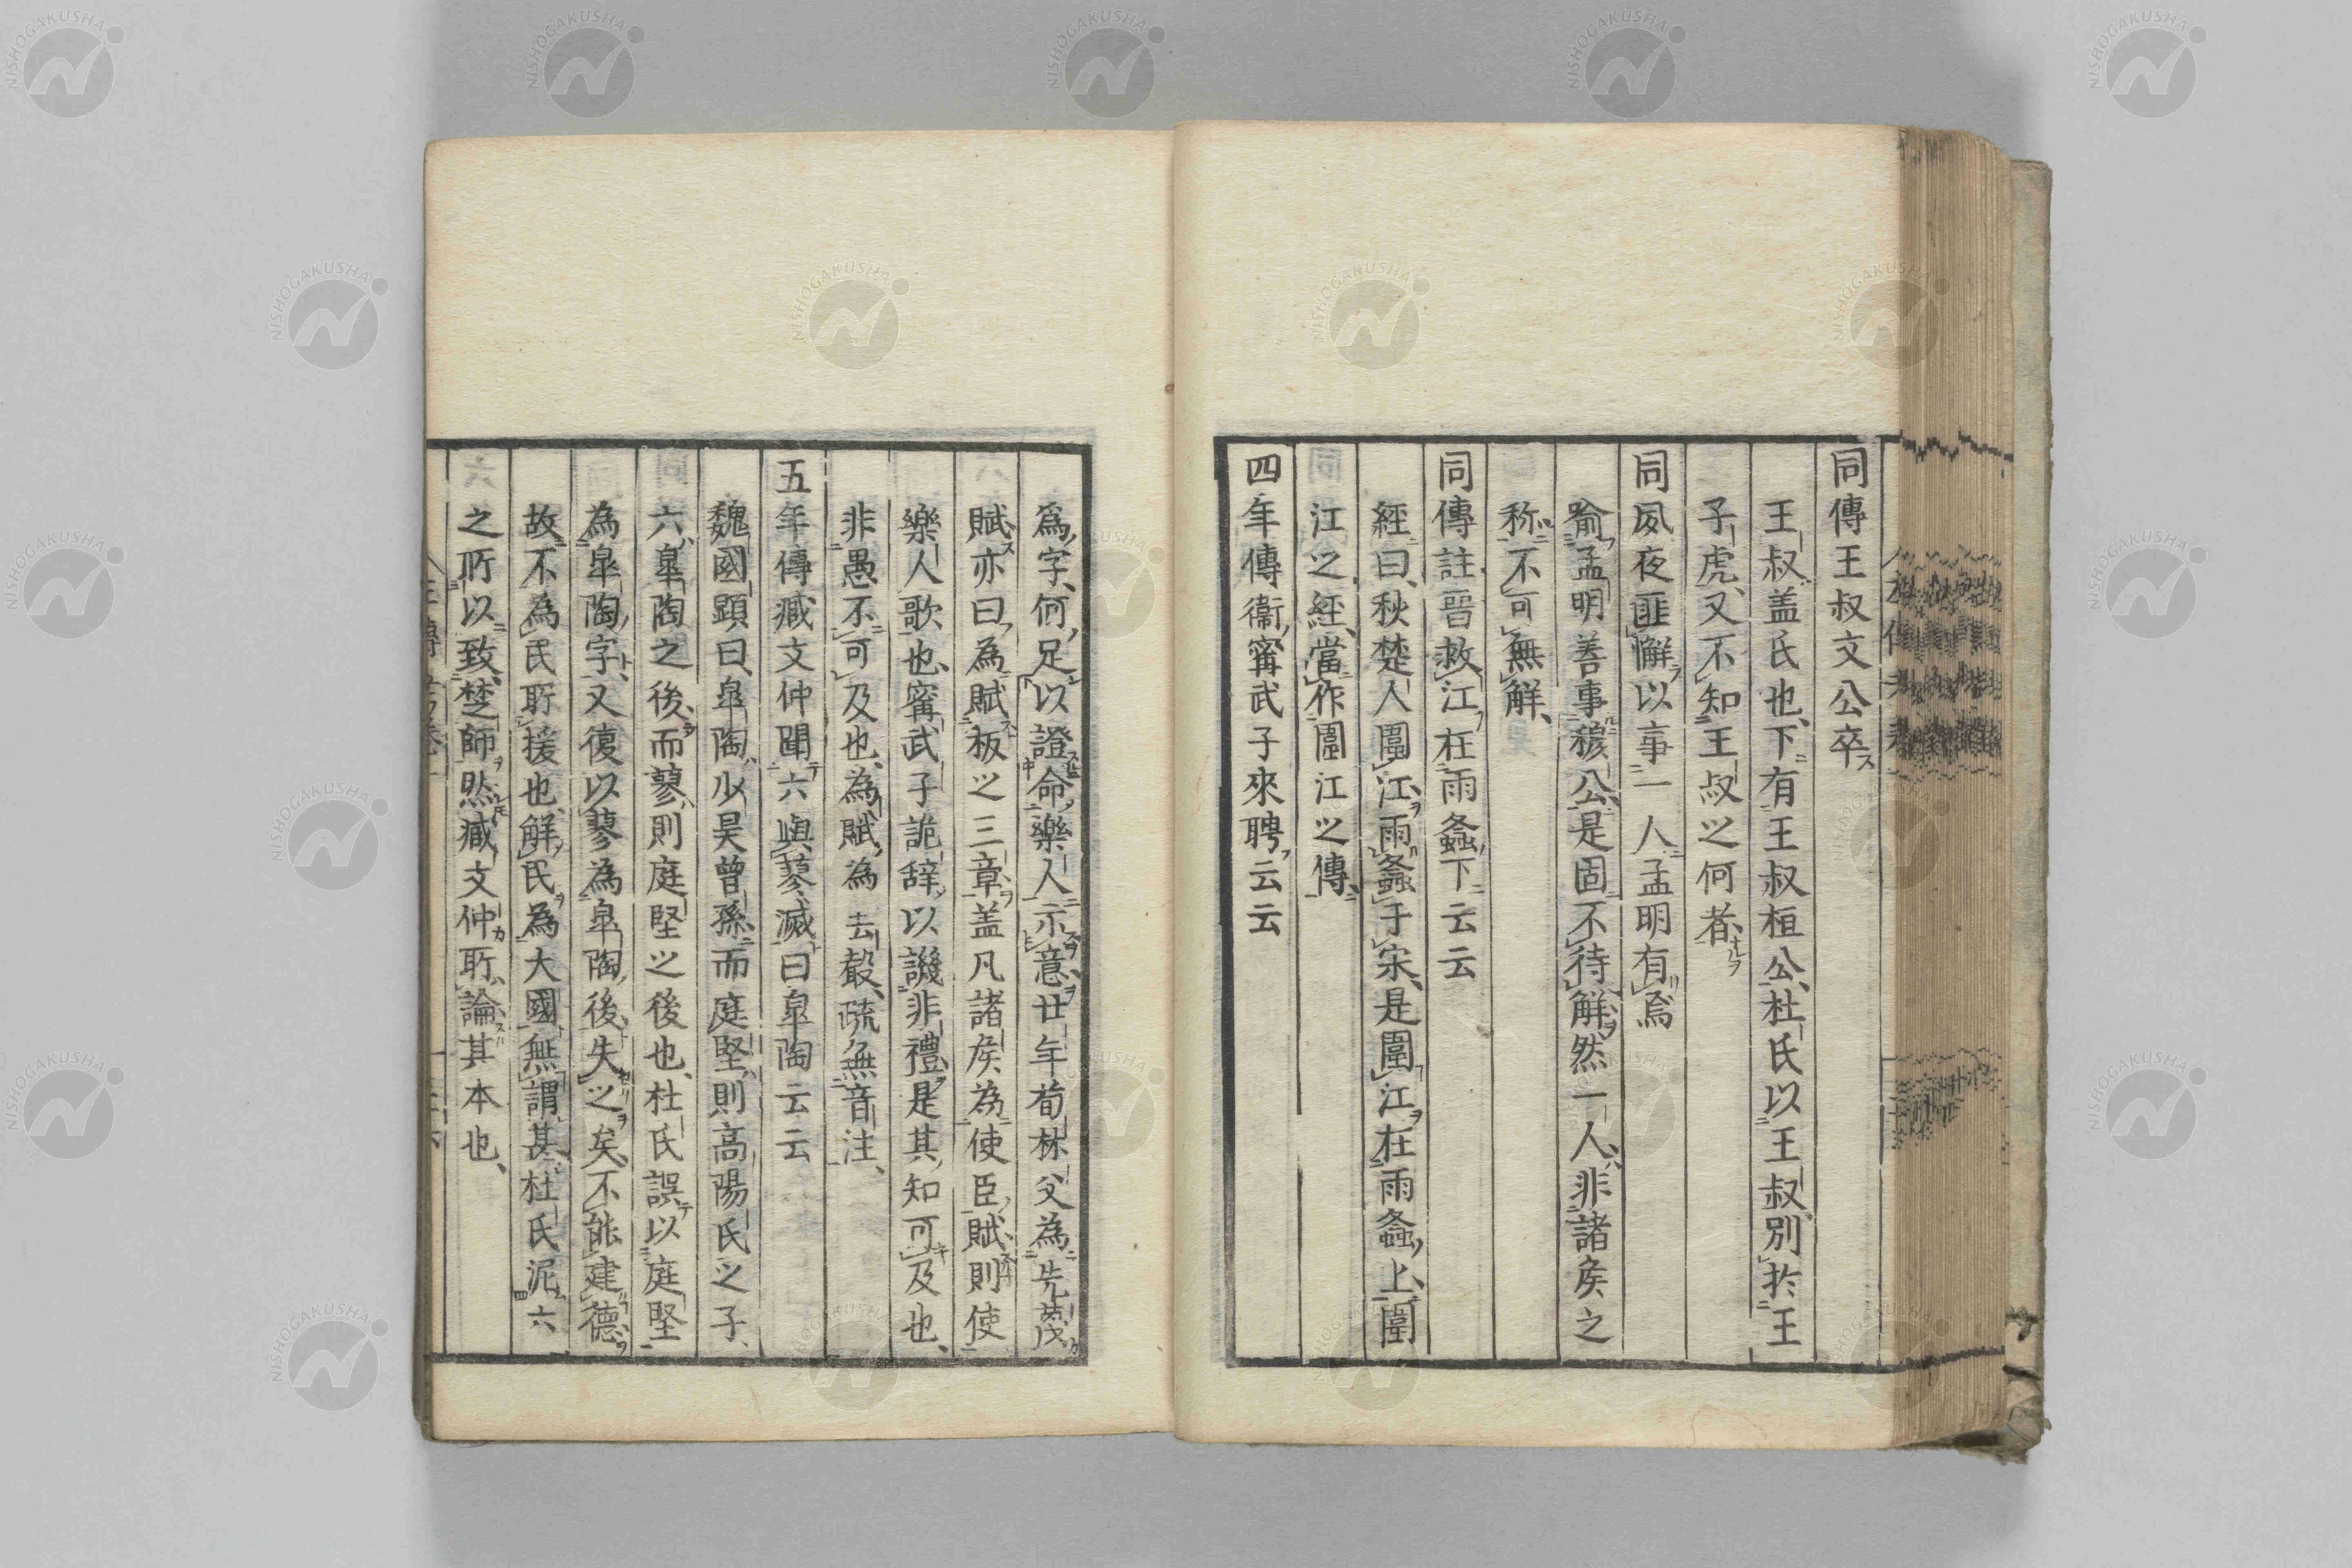 同傳王叔文公卒
王叔盖氏也下有王叔桓公杜氏以王叔別扵王
子虎又不知王叔之何者
同夙夜匪懈以事一人孟明有焉
喻孟明善事穆公是固不待解然一人非諸矦之
称不可無解
同傳註晋救江在雨螽下云云
經曰秋楚人圍江雨螽于宋是圍江在雨螽上圍
江之經當作圍江之傳
四年傳衞甯武子來聘云云
爲字何足以證命樂人示意廿年荀林父為先蔑
賦亦曰為賦板之三章盖凡諸矦為使臣賦則使
樂人歌也甯武子詭辞以譏非禮是其知可及也
非愚不可及也為賦為去聲疏無音注
五年傳臧文仲聞六與蓼滅曰皐陶云云
魏國顕曰皐陶少昊曾孫而庭堅則高陽氏之子
六皐陶之後而蓼則庭堅之後也杜氏誤以庭堅
為皐陶字又復以蓼為皐陶後失之矣不能建德
故不為民所援也解民為大國無謂甚杜氏泥六
之所以致楚師然臧文仲所論其本也
NISHOGAKUSHA